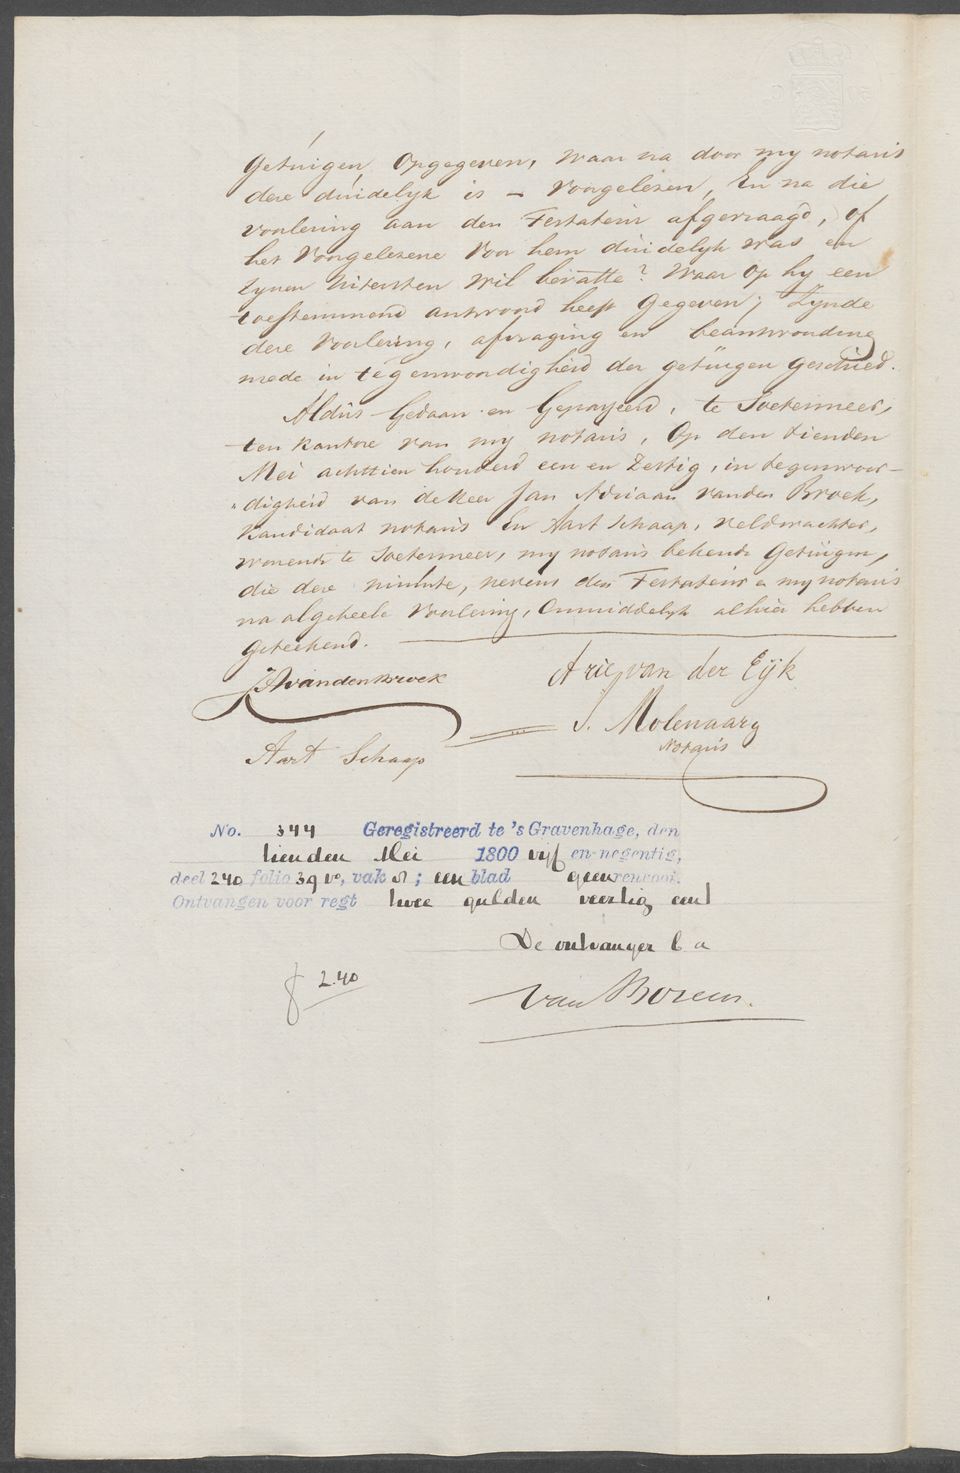 Getuigen opgegeven, waar na door my notaris
deze duidelyk is – voorgelezen, En na die
voorlezing aan den Testateur afgevraagd, of
het voorgelezene voor hem duidelyk was en
zynen uitersten wil bevatte? Waar op hy een
toestemmend antwoord heeft gegeven; Zynde
deze voorlezing, afvraging en beantwoording
mede in tegenwoordigheid der getuigen geschied.
Aldus Gedaan en Gepasseerd, te Soetermeer,
ten kantore van my notaris, Op den tienden
Mei achttien honderd een en Zestig, in tegenwoor–
digheid van de Heer Jan Adriaan vanden Broek,
Kandidaat notaris En Aart Schaap, veldwachter,
wonende te Soetermeer, my notaris bekende Getuigen,
die deze minute, nevens den Testateur en my notaris
na algeheele voorlezing, Onmiddelyk alhier hebben
geteekend.
JAvandenBroek Arie van der Eijk
J. Molenaar
Notaris
Aart Schaap
No. 344 Geregistreerd te 's Gravenhage, den
tienden Mei 1800 vijf en-negentig,
deel 240 folio 39 vo, vak 8; een blad geen renvooi.
Ontvangen voor regt twee gulden veertig cent
De ontvanger
f 2.40